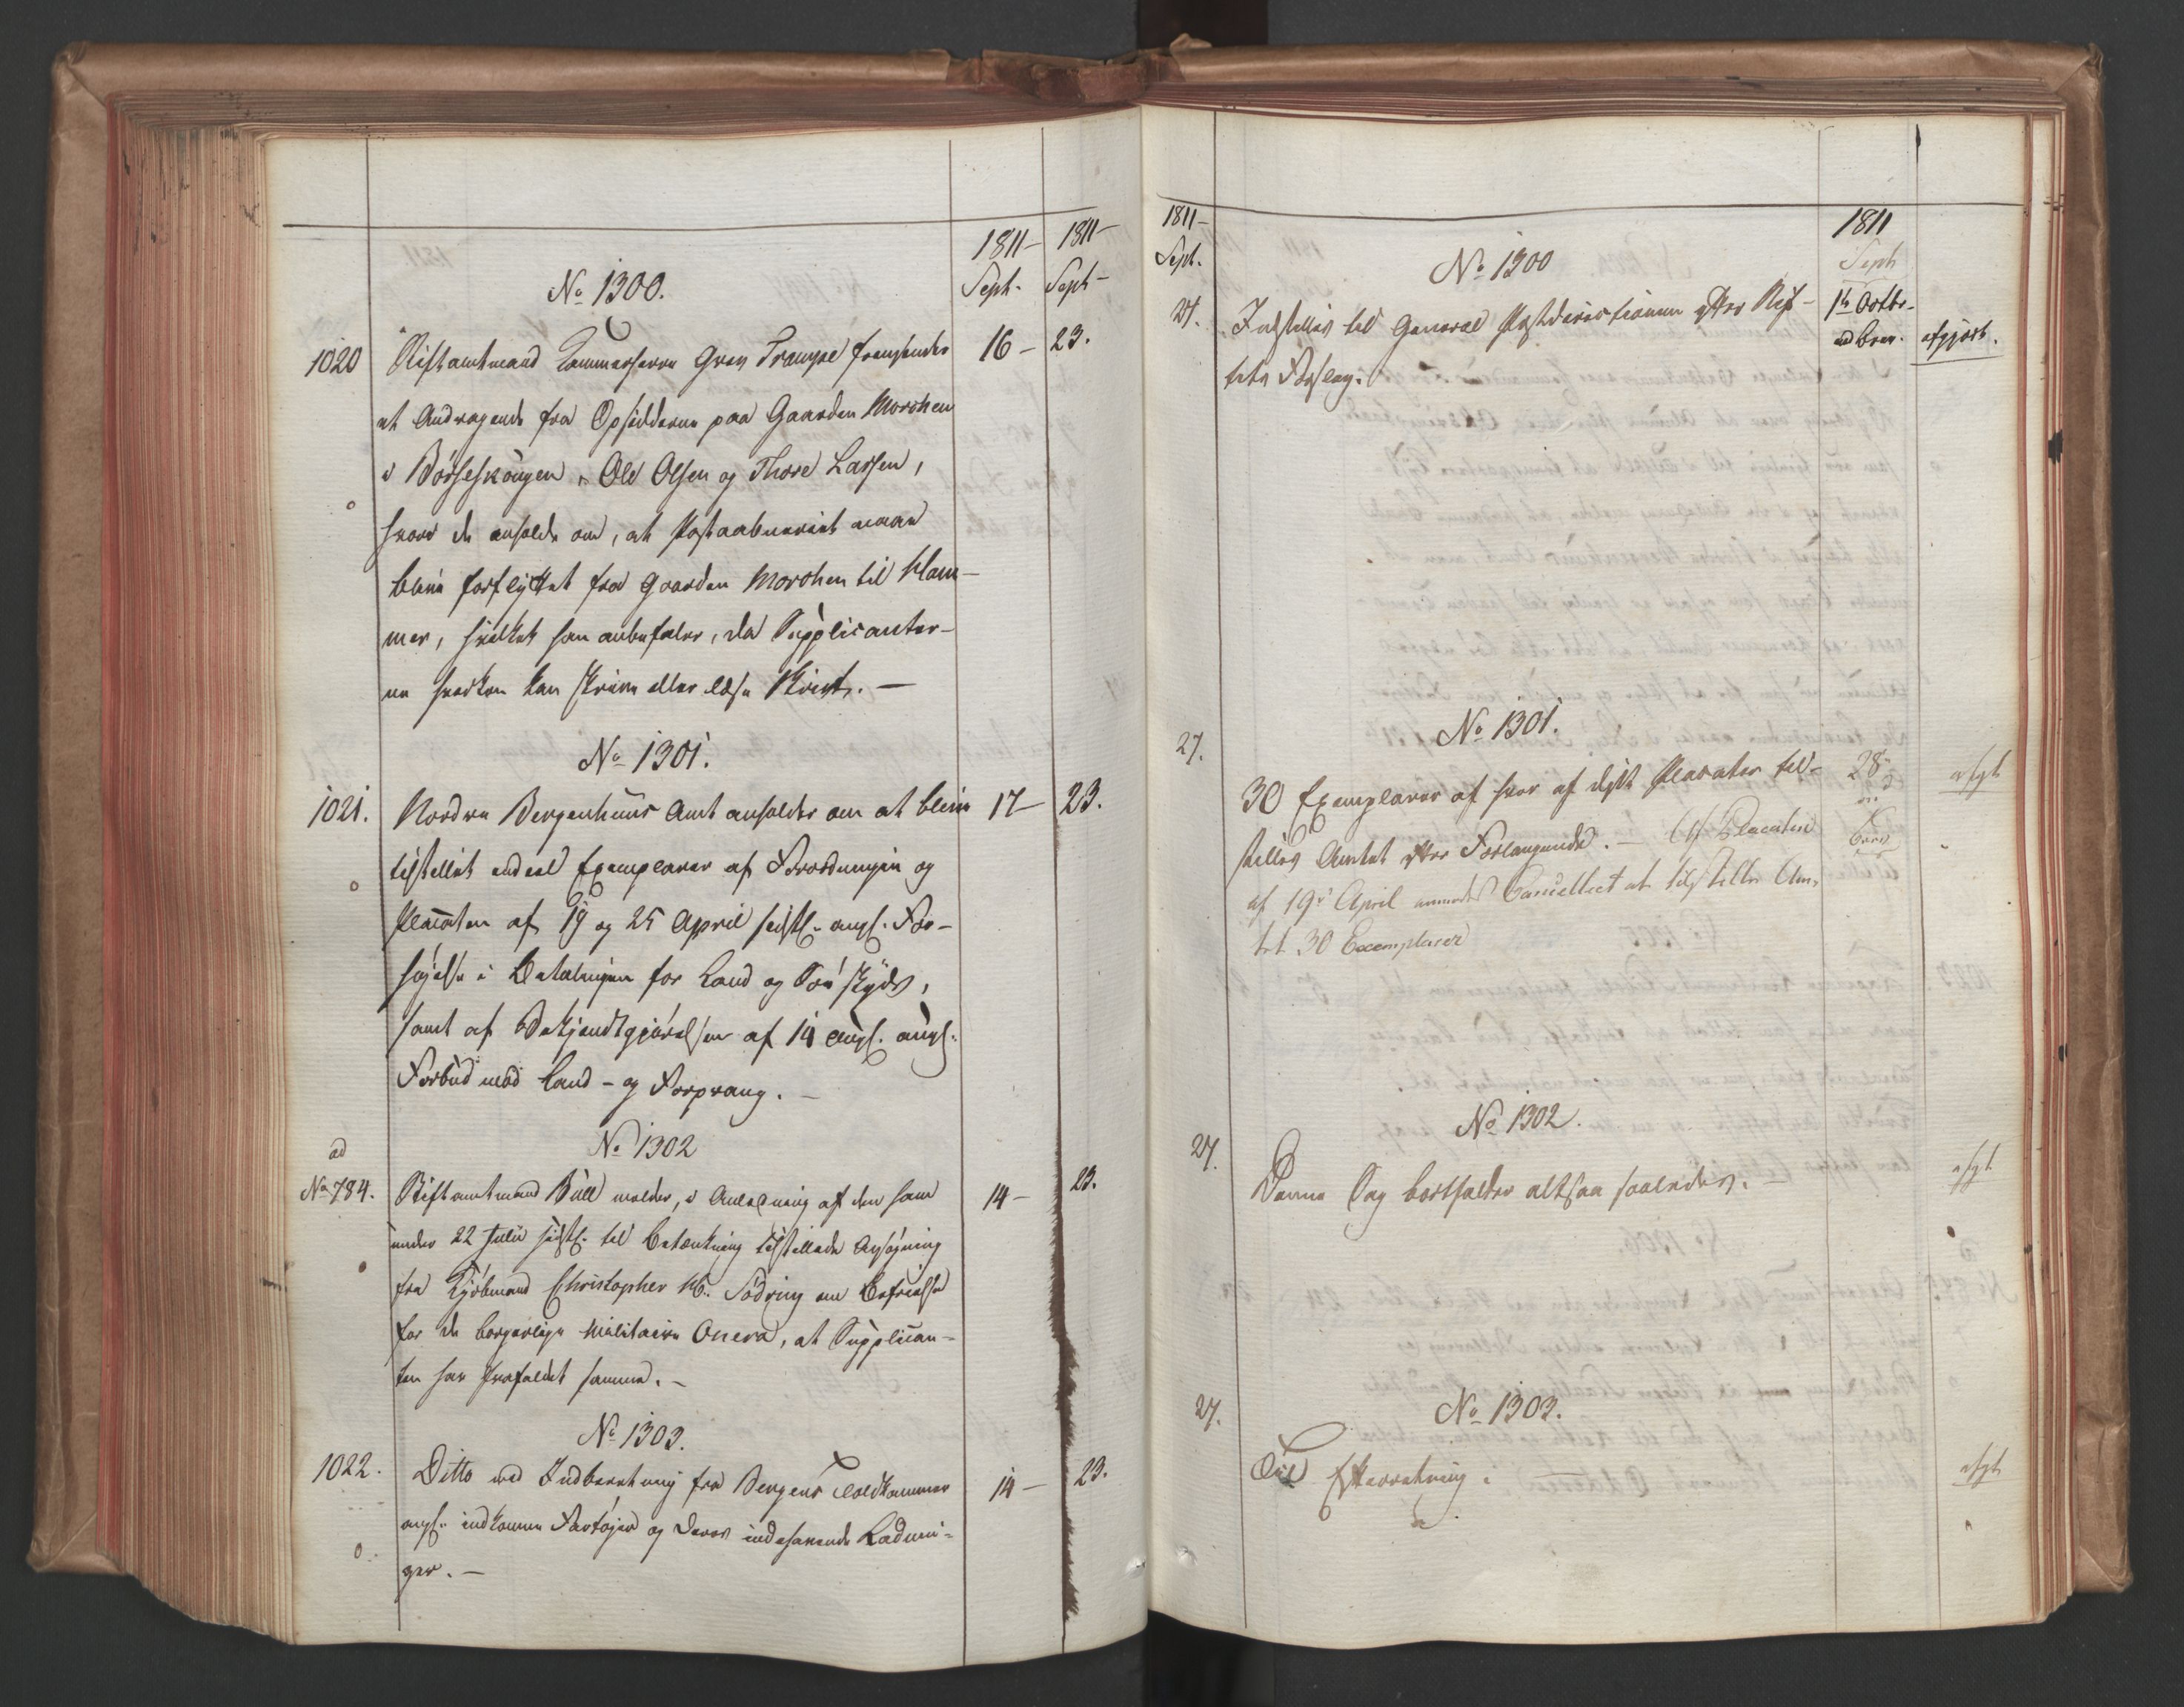 1811- 1811-
Sept- Sept-
No 1300.
1020 Stiftamtmand Kammerherre Grev Trampe fremsender 16- 23.
et Andragende fra Opsidderne paa Gaarden Morchen
i Börseskougen, Ole Olsen og Thore Larsen,
hvori de anholde om, at Postaabneriet maae
blive forflyttet fra Gaarden Morchen til Ham-
mer, hvilket han anbefaler, da Supplicanter-
ne hverken kan skrive eller læse Skrivt. -
No 1301.
1021. Nordre Bergenhuus Amt anholder om at blive 17- 23.
tilstillet endeel Exemplarer af Forordningen og
Placaten af 19 og 25 April sidstl. angl. For-
høielse i Betalingen for Land og Söe Skyds,
samt af Bekjendtgjörelsen af 14 Aug. angl.
Forbud mod Land- og Forprang. -
No 1302
ad
No 784. Stiftamtmand Bull melder, i Anledning af den ham 14- 23.
under 22 Julii sidstl. til Betænkning tilstillede Ansögning
fra Kjöbmand Christopher Södring om Befrielse
for de borgerlige militaire Onera, at Supplican-
ten har frafaldet samme. -
No 1303.
1022. Ditto med Indberetning fra Bergens Toldkammer 14- 23.
angl. indkomne Fartöjer og deres indehavende Ladnin-
ger. -
1811-
Sept.
1811
Sept
No 1300
27. Indstilles til General Postdirectionen efter Stif- 1te Octbr.
tets Forslag. ad Brev. afgjort.
No 1301.
27. 30 Exemplarer af hver af disse Placater til- 28 afgt
stilles Amtet efter Forlangende. - Af Placaten Brev
af 19de April anmodes Cancelliet at tilstille Am-
tet 30 Exemplarer
No 1302.
27. Denne Sag bortfalder altsaa saaledes. - afgt
No 1303.
27. Til Efterretning afgt